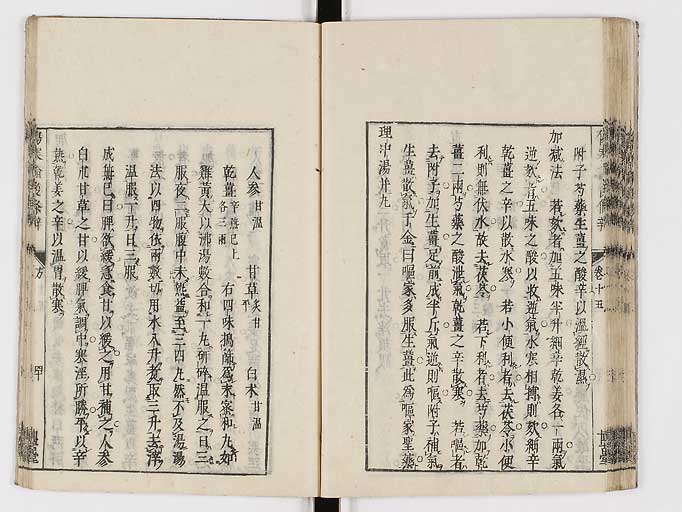 附子芍藥生薑之酸辛以溫經散濕
加減法 若欬者加五味半升細辛乾姜各一兩氣
逆欬者五味之酸以收逆氣水寒相搏則欬細辛
乾薑之辛以散水寒 若小便利者去茯苓小便
利則無伏水故去茯苓 若下利者去芍藥加乾
薑二兩芍藥之酸泄氣乾薑之辛散寒 若嘔者
去附子加生薑足前成半斤氣逆則嘔附子補氣
生薑散氣千金曰嘔家多服生薑此為嘔家聖藥
理中湯并丸
人參甘溫 甘草炙甘平 白朮甘溫
乾薑辛熱已上各三兩 右四味搗篩為末蜜和丸如
雞黃大以沸湯數合和一丸研碎溫服之日三
服夜二服腹中未熱益至三四丸然不及湯湯
法以四物依兩數切用水八升煮取三升去滓
溫服一升日三服
成無巳曰脾欲緩急食甘以緩之用甘補之人參
白朮甘草之甘以緩脾氣調中寒淫所勝平以辛
熱乾姜之辛以溫胃散寒
卷十五
方